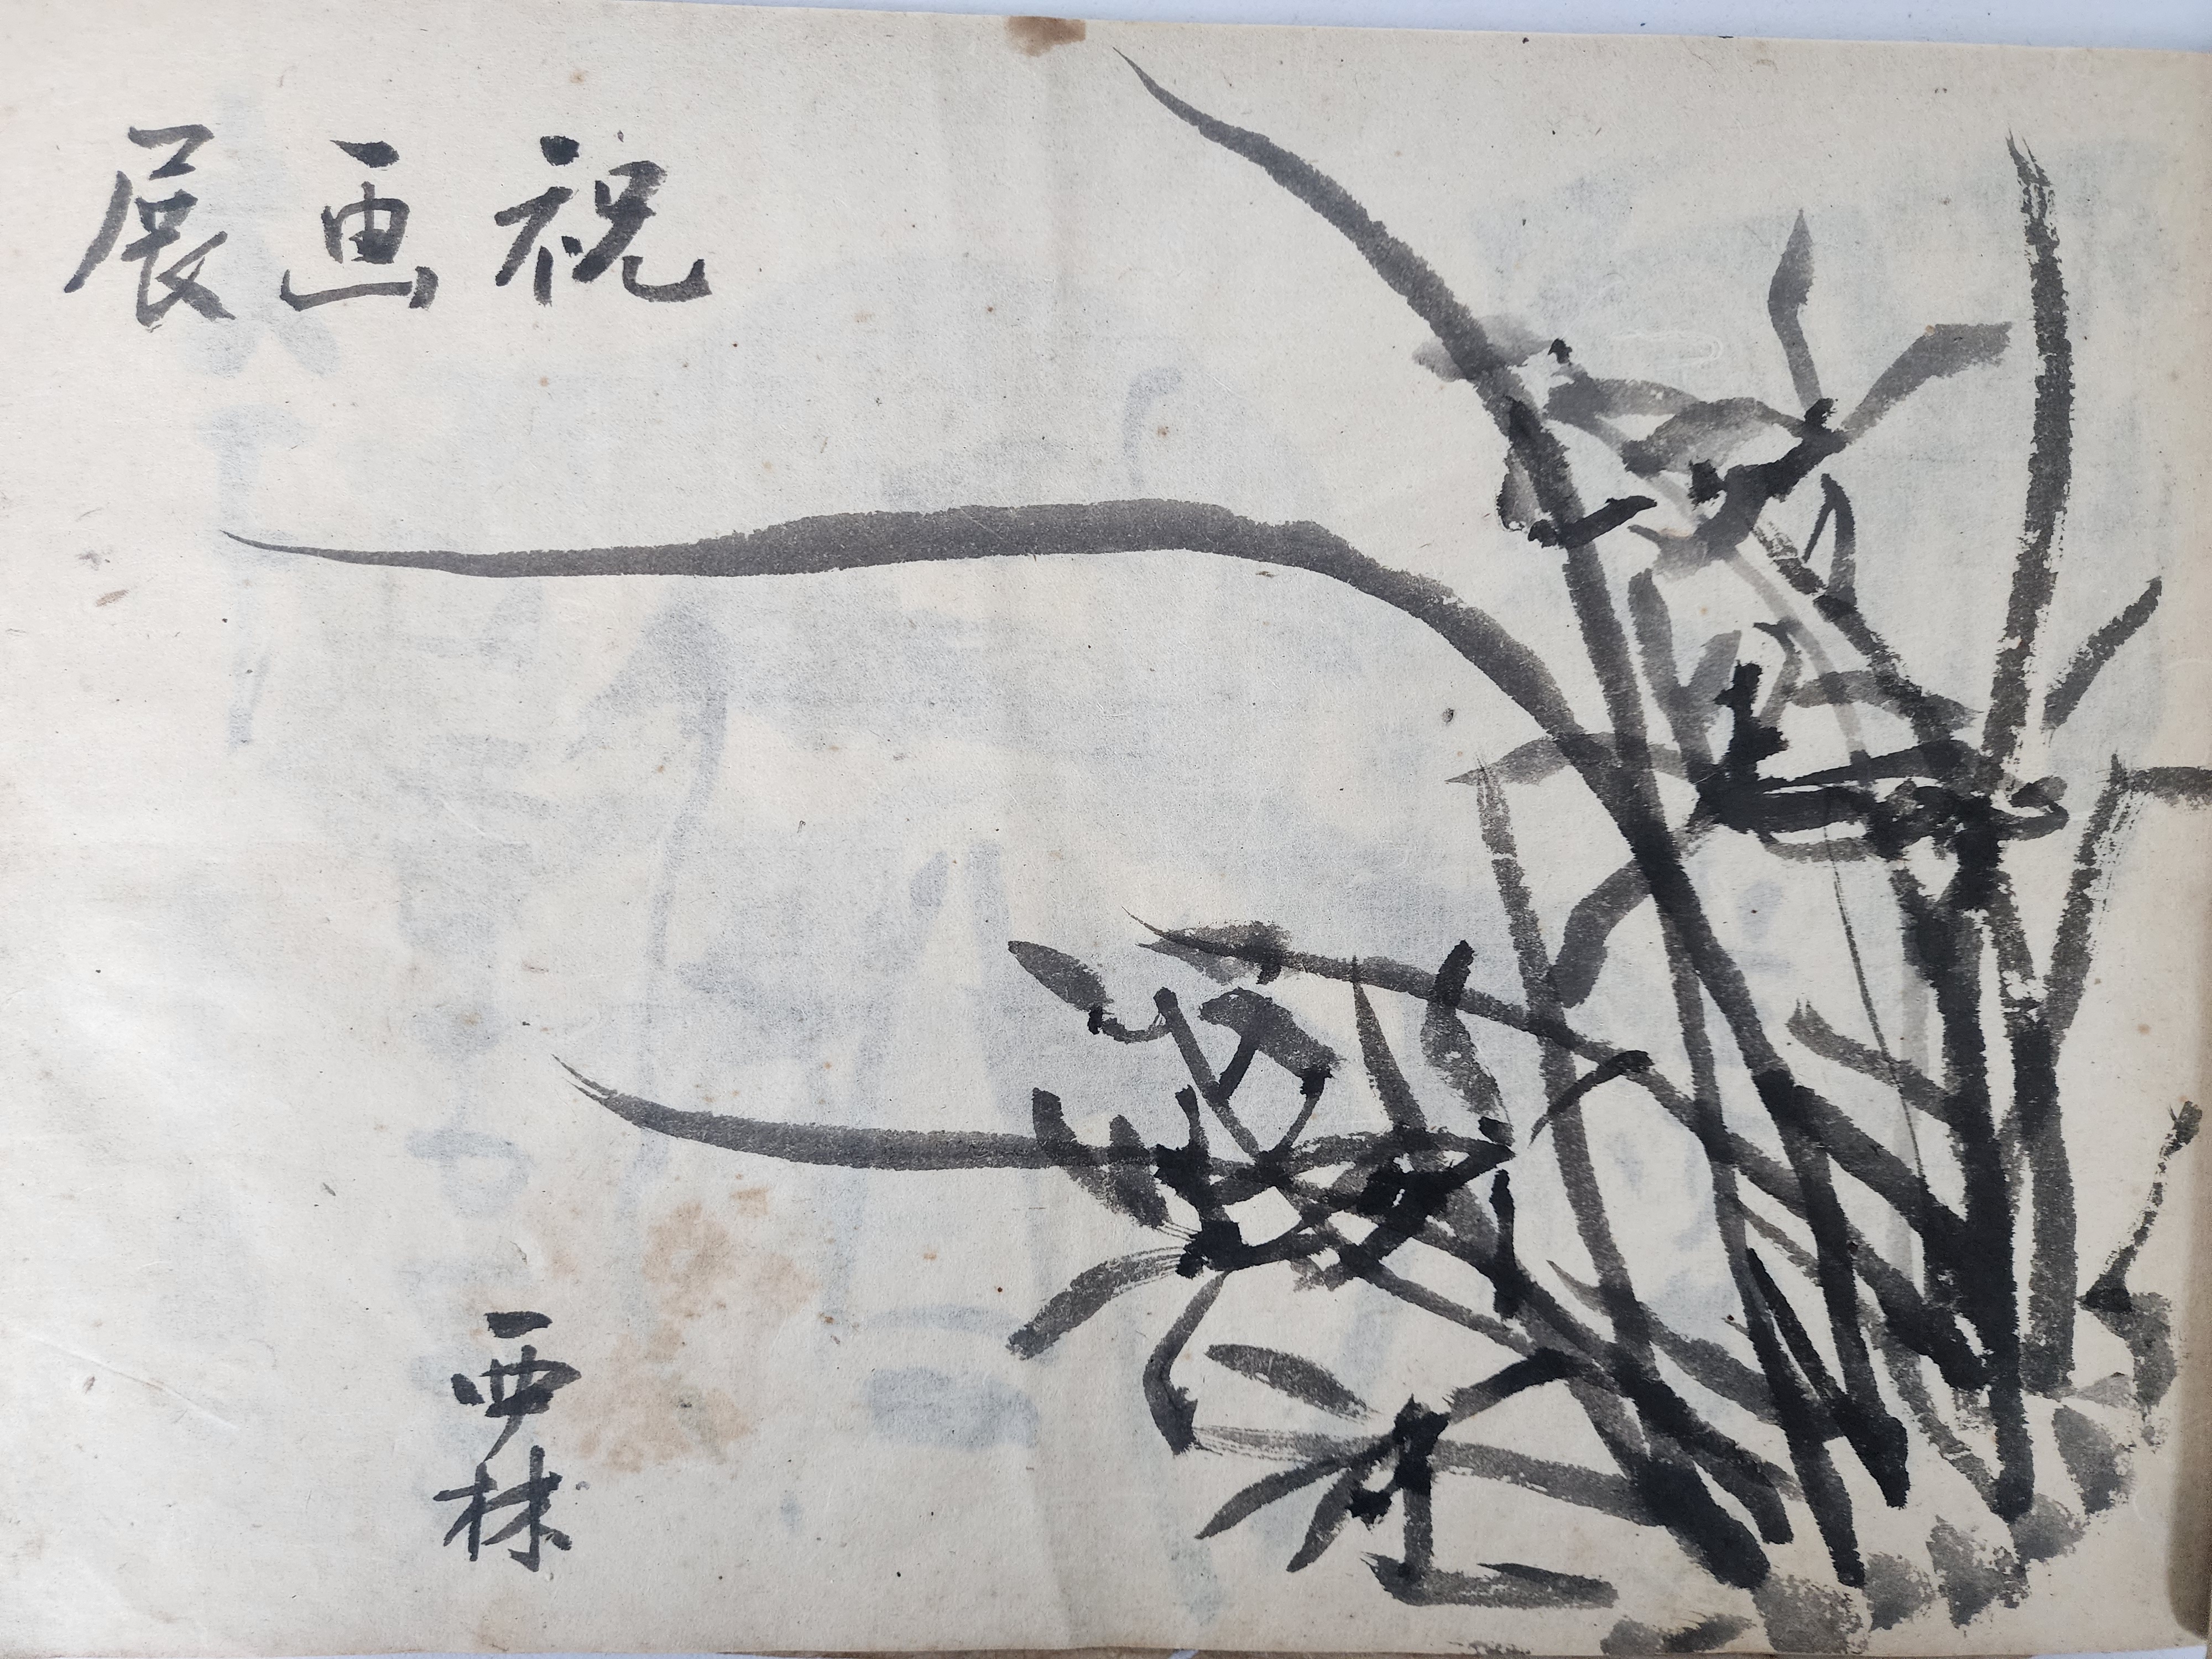 祝画展
西林